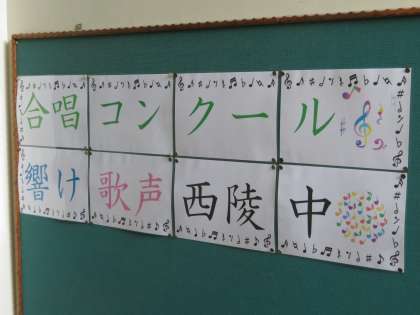 合唱コンクール
響け歌声西陵中